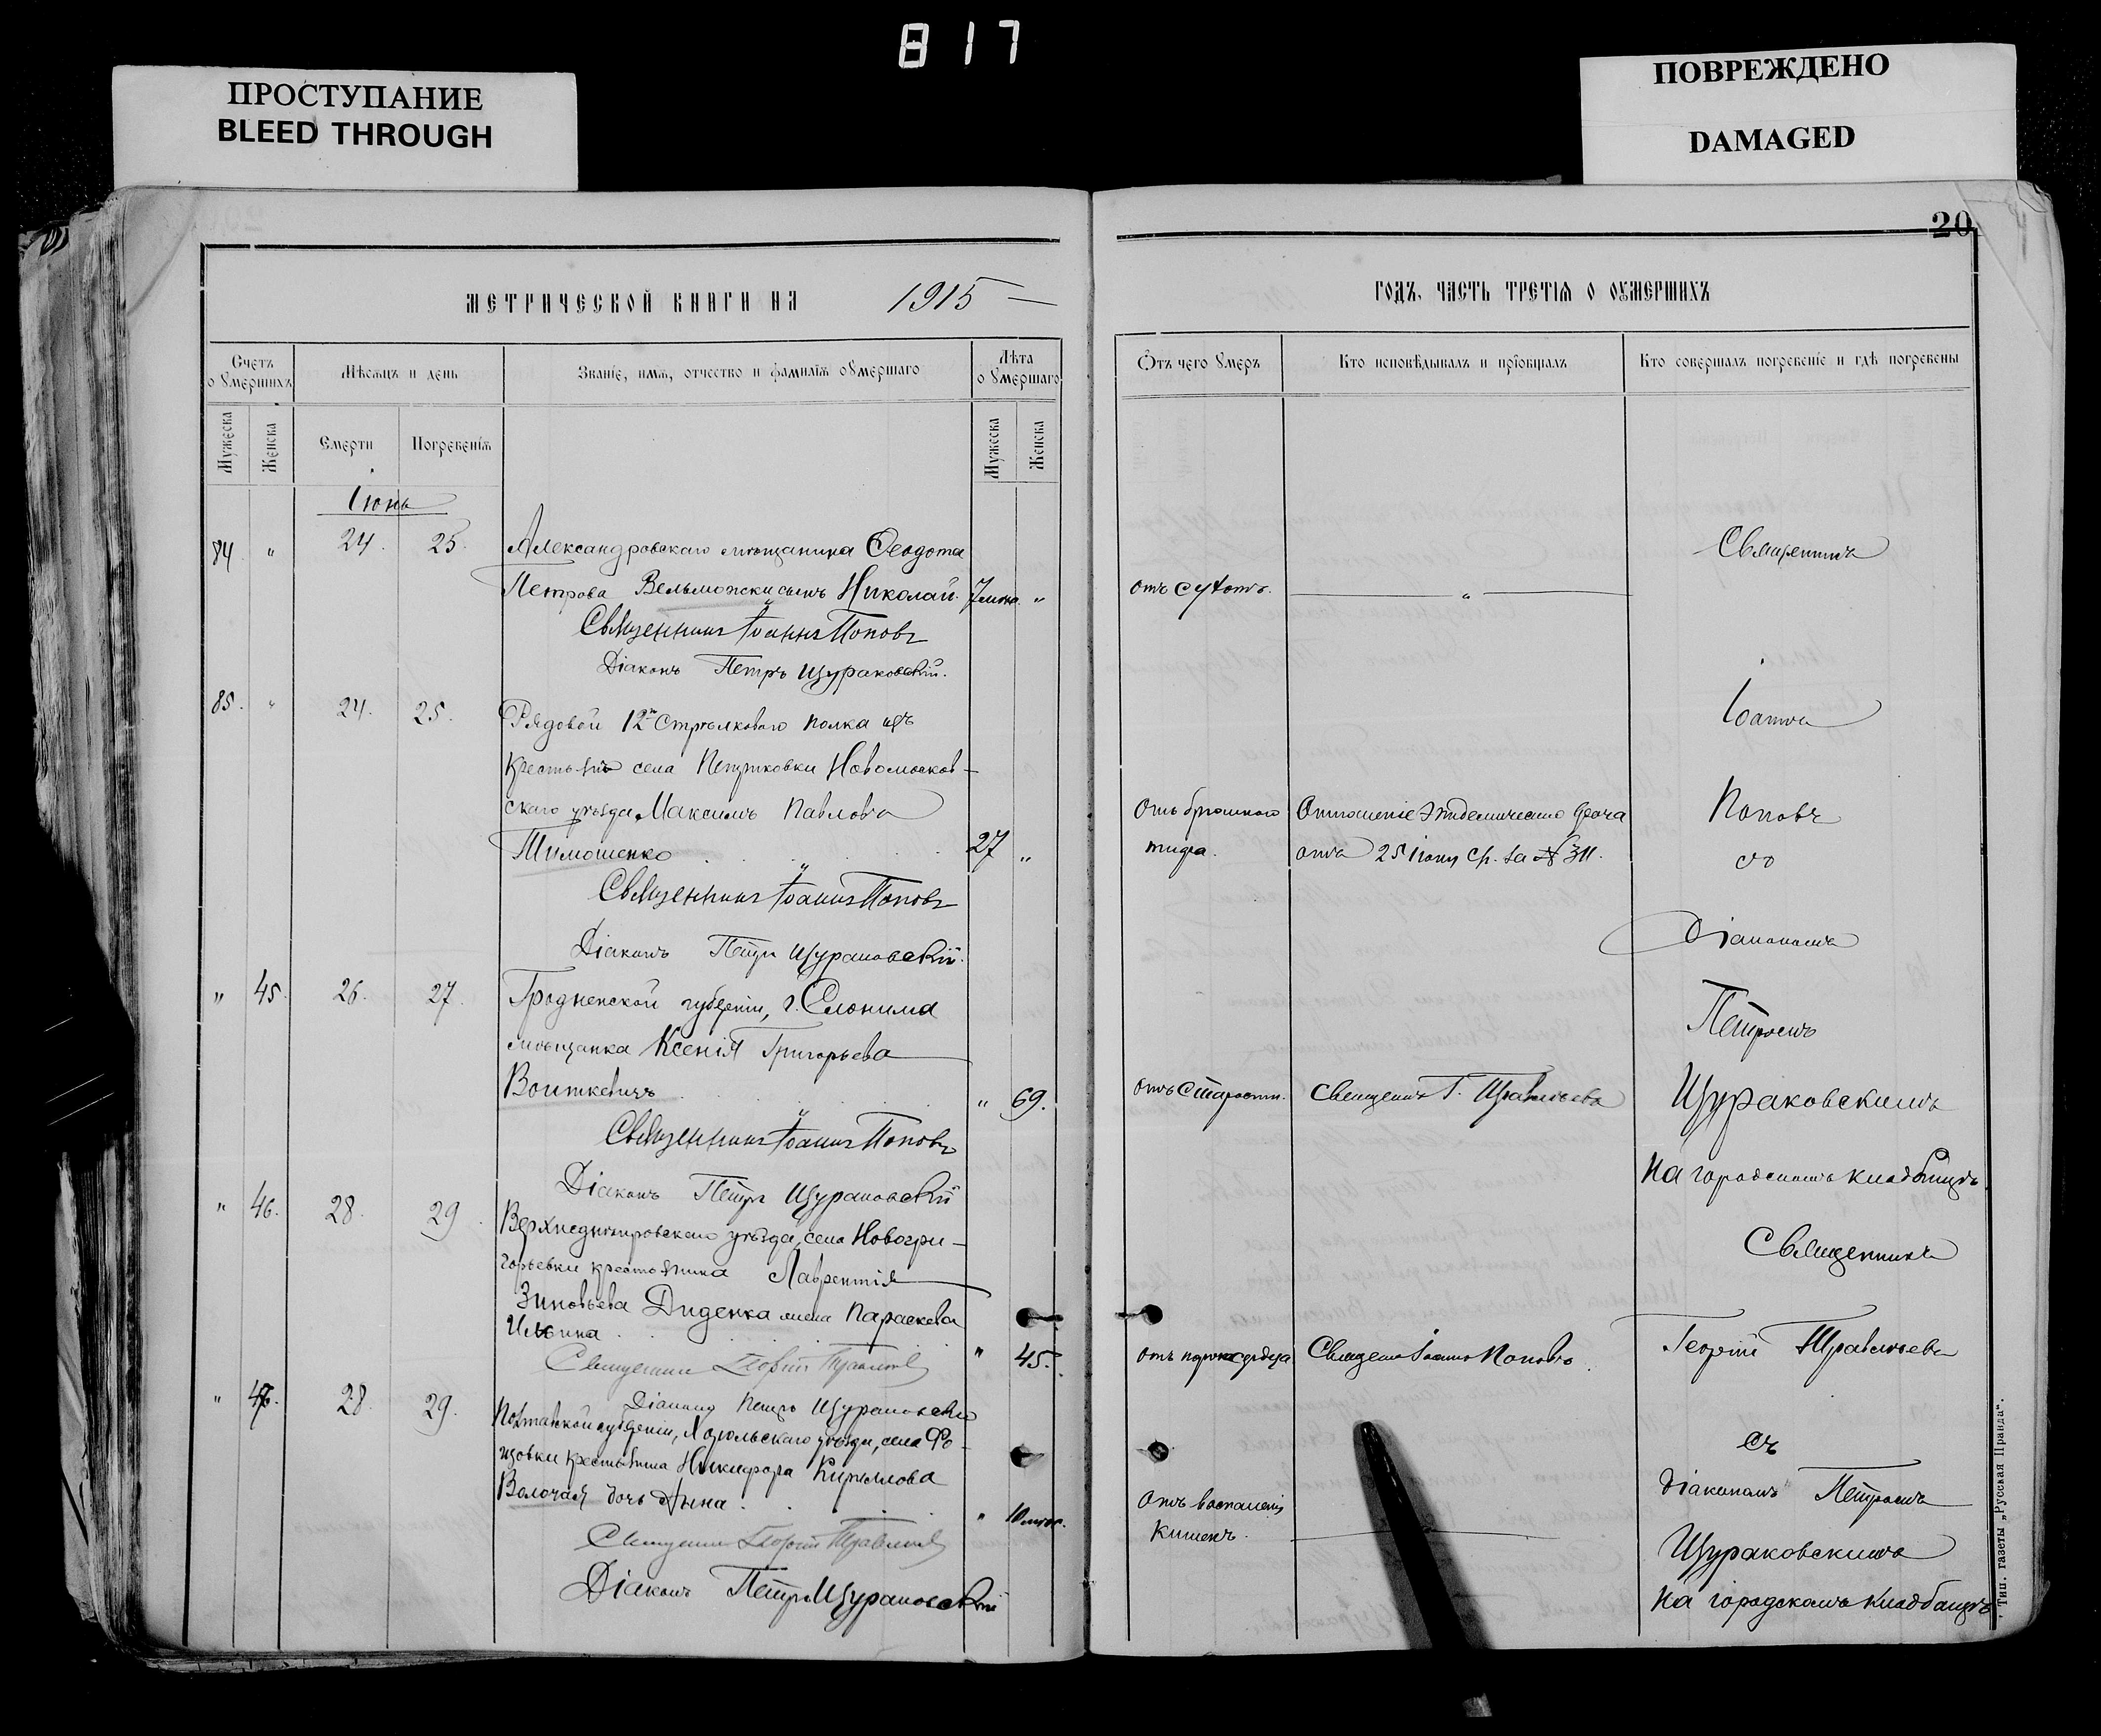 817
ПРОСТУПАНИЕ
BLEED THROUGH
ПОВРЕЖДЕНО
DAMAGED
20
МЕТРИЧЕСКОЙ КНИГИ НА 1915
ГОДЪ, ЧАСТЬ ТРЕТІЯ О ОУМЕРШИХЪ
Счетъ о умершихъ
Мѣсяцъ и день
Званіе, имя, отчество и фамилія оумершаго
Лѣта оумершаго
Мужеска
Женска
Смерти
Погребенія
Мужеска
Женска
Отъ чего умеръ
Кто исповѣдывалъ и пріобщалъ
Кто совершалъ погребеніе и гдѣ погребены
Іюнь
84 " 24. 25. Александровскаго мѣщанина Ѳеодота
Петрова Вельможки сынъ Николай. 7 мѣс. "
Священникъ Іоаннъ Поповъ
Діаконъ Петръ Щураковскій.
85. " 24. 25. Рядовой 12го Стрѣлковаго полка изъ
крестьянъ села Петриковки Новомосков-
скаго уѣзда Максимъ Павловъ
Тимошенко 27 "
Священникъ Іоаннъ Поповъ
Діаконъ Петръ Щураковскій.
" 45. 26. 27. Гродненской губерніи, г. Слонима
мѣщанка Ксенія Григорьева
Войткевичъ " 69.
Священникъ Іоаннъ Поповъ
Діаконъ Петръ Щураковскій
" 46. 28. 29. Верхнеднѣпровскаго уѣзда, села Новогри-
горьевки крестьянина Лаврентія
Зиновьева Диденка жена Параскева
Ильина " 45.
Священникъ Георгій
Діаконъ Петръ Щураковскій
" 47. 28. 29. Полтавской губерніи, Хорольскаго уѣзда, села
крестьянина Никифора Кириллова
Волочая дочь Анна " 10 мѣс.
Священникъ Георгій
Діаконъ Петръ Щураковскій
отъ сухотъ. "
Отъ брюшного
тифа.
Отношеніе эпидемическаго врача
отъ 25 Іюня с/г. за № 311.
отъ старости. Священникъ Г.
отъ порока сердца Священникъ Іоаннъ Поповъ.
Отъ воспаленія
кишекъ.
Священникъ
Іоаннъ
Поповъ
со
Діакономъ
Петромъ
Щураковскимъ
На городскомъ кладбищѣ.
Священникъ
Георгій
съ
Діакономъ Петромъ
Щураковскимъ
На городскомъ кладбищѣ
Тип. газеты „Русская Правда“.